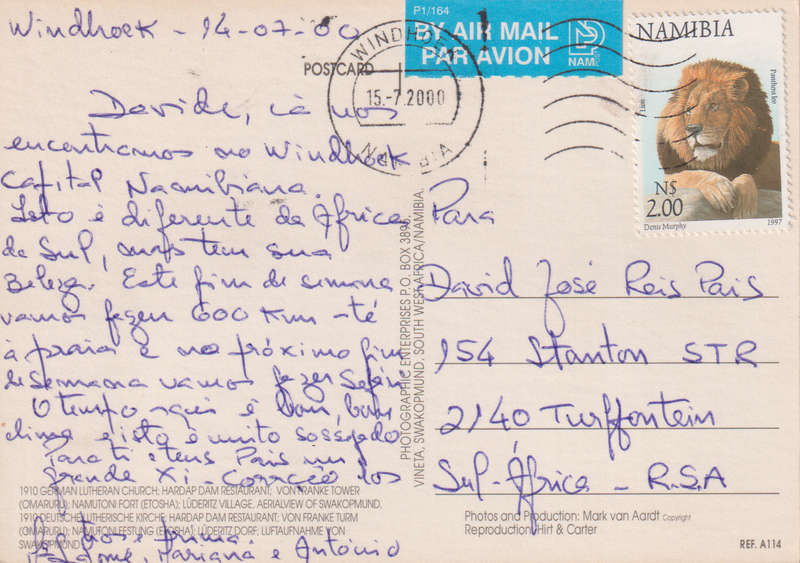 Windhoek - 14-07-00
POSTCARD
P1/164
BY AIR MAIL
PAR AVION
NAM
WINDHOEK
15.-7.2000
NAMIBIA
NAMIBIA
Lion
Panthera leo
N$
2.00
Denis Murphy
1997
Davide, cá nos
encontramos no Windhoek
Capital Naamibiana.
Isto é diferente da África
do Sul, mas tem sua
Beleza. Este fim de semana
vamos fazer 600 Km - té
à praia e no próximo fim
de semana vamos fazer Safari.
O tempo aqui é bom, bom
clima e isto é muito sossegado
Para ti e teus Pais um
grande Xi-Coração dos
Padrinhos e Prima.
Salomé, Mariana e António
PHOTOGRAPHIC ENTERPRISES P.O. BOX
VINETA, SWAKOPMUND, SOUTH WEST AFRICA/NAMIBIA.
Para
David José Reis Pais
154 Stanton STR
2140 Turffontein
Sul-África - R.S.A
1910 GERMAN LUTHERAN CHURCH; HARDAP DAM RESTAURANT; VON FRANKE TOWER
(OMARURU); NAMUTONI FORT (ETOSHA); LÜDERITZ VILLAGE, AERIALVIEW OF SWAKOPMUND.
1910 DEUTSCHE LUTHERISCHE KIRCHE; HARDAP DAM RESTAURANT; VON FRANKE TURM
(OMARURU); NAMUTONI FESTUNG (ETOSHA); LÜDERITZ DORF, LUFTAUFNAHME VON
SWAKOPMUND
Photos and Production: Mark van Aardt Copyright
Reproduction: Hirt & Carter
REF. A114